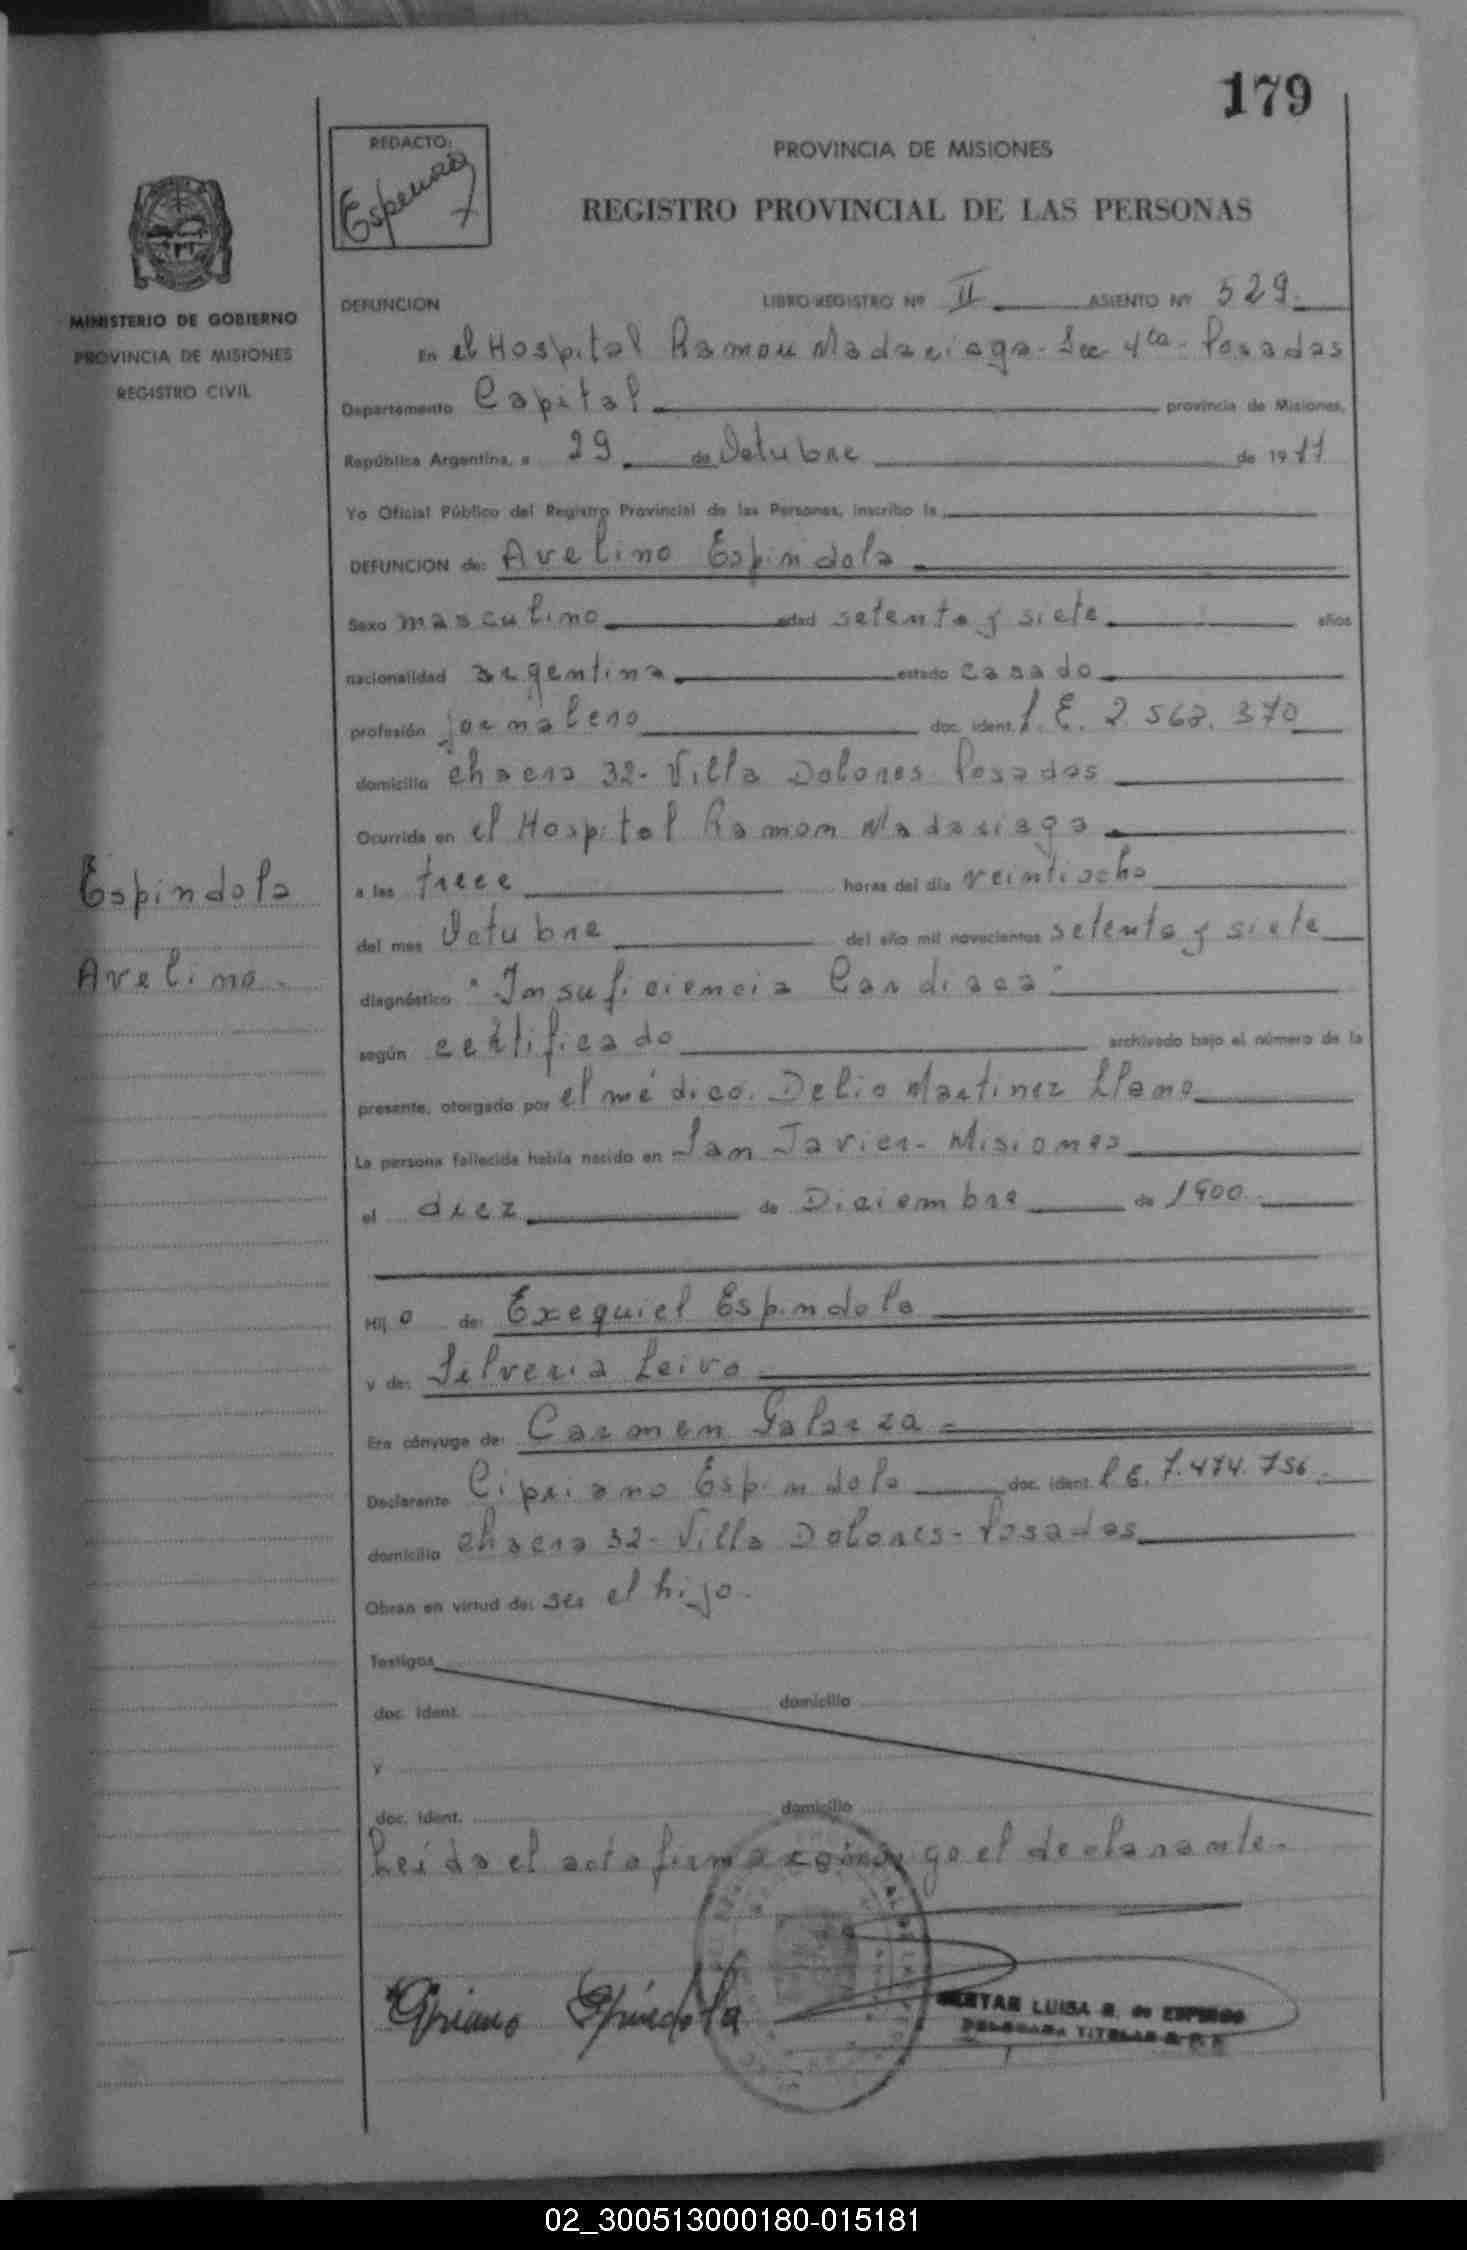 179
REDACTO:
PROVINCIA DE MISIONES
REGISTRO PROVINCIAL DE LAS PERSONAS
MINISTERIO DE GOBIERNO
PROVINCIA DE MISIONES
REGISTRO CIVIL
DEFUNCION LIBRO-REGISTRO Nº II ASIENTO Nº 529
En el Hospital Ramon Madariaga - Sec 4ta - Posadas
Departamento Capital provincia de Misiones,
República Argentina, a 29 de Octubre de 1977
Yo Oficial Público del Registro Provincial de las Personas, inscribo la
DEFUNCION de: Avelino Espindola
Sexo masculino edad setenta y siete años
nacionalidad argentina estado casado
profesión jornalero doc. ident. L.E. 2.562.370
domicilio chacra 32- Villa Dolores Posadas
Ocurrida en el Hospital Ramon Madariaga
a las trece horas del día veintiocho
del mes Octubre del año mil novecientos setenta y siete
diagnóstico "Insuficiencia Cardiaca"
según certificado archivado bajo el número de la
presente, otorgado por el médico. Delio Martinez Llano
La persona fallecida había nacido en San Javier- Misiones
el diez de Diciembre de 1900.
Hijo de: Exequiel Espindola
y de: Silveria Leiva
Era cónyuge de: Carmen Galarza
Declarante Cipriano Espindola doc. ident. L.E. 7.474.756
domicilio chacra 32- Villa Dolores- Posadas
Obran en virtud de: ser el hijo.
Espindola
Avelino.
Testigos
doc. Ident. domicilio
y
doc. Ident. domicilio
Leída el acta firma conmigo el declarante.
Cipriano Espíndola
LUISA
TITULAR
02_300513000180-015181